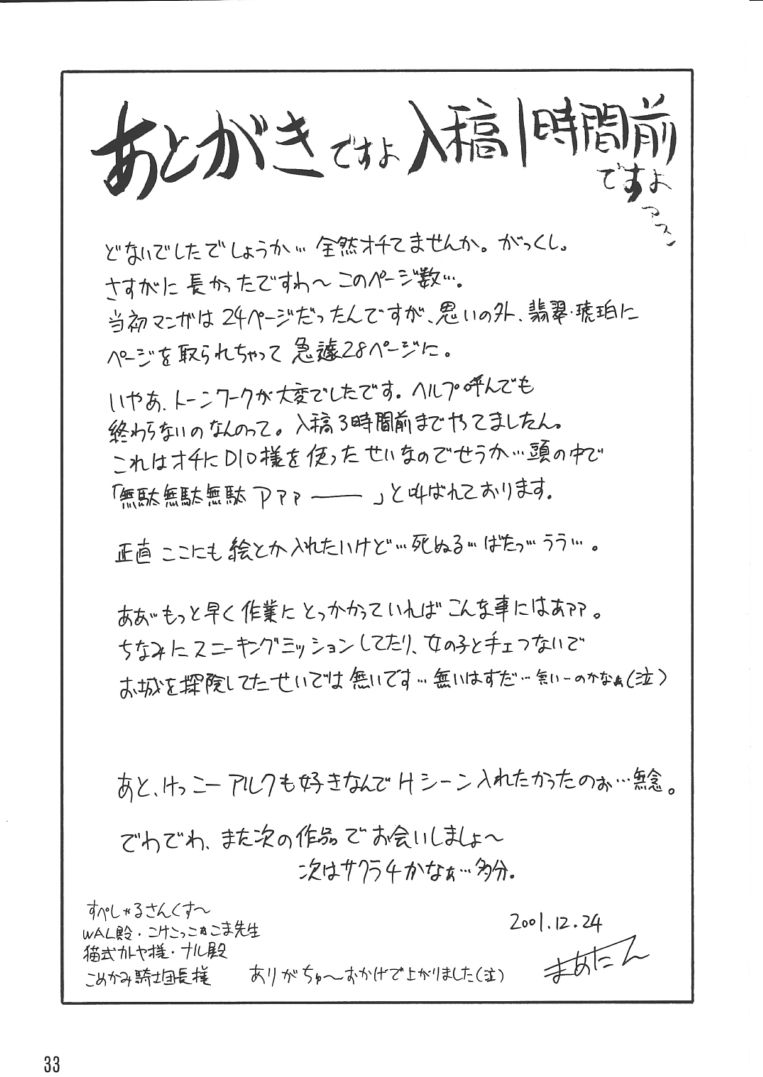 あとがきですよ 入稿1時間前
ですよ
どないでしたでしょうか… 全然オチてませんか。がっくし。
さすがに 長かったですわ〜 このページ数…。
当初マンガは 24ページだったんですが、思いの外、翡翠・琥珀に
ページを取られちゃって 急遽28ページに。
いやあ、トーンワークが大変でしたです。ヘルプ呼んでも
終わらないのなんのって。入稿3時間前までやてましたん。
これはオチにDIO様を使ったせいなのでせうか…頭の中で
「無駄無駄無駄アァァ――」と叫ばれております。
正直 ここにも 絵とか入れたいけど…死ぬる…ばたっ…うう…。
ああ゛もっと早く作業に とっかかっていれば こんな事にはあァァ。
ちなみに スニーキングミッションしてたり、女の子とチェつないで
お城を探険してたせいでは無いです…無いはずだ…無いーのかなぁ(泣)
あと、けっこーアルクも好きなんで Hシーン入れたかったのぉ…無念。
でわでわ、また次の作品でお会いしましょ〜
次はサクラ4かなぁ…多分。
すぺしゃるさんくす〜
WAL殿・こけこっこぉこま先生
猫式カトヤ様・ナル殿
こめかみ騎士団長様 ありがちゅ〜おかげで上がりました(泣)
2001.12.24
まあたん
33